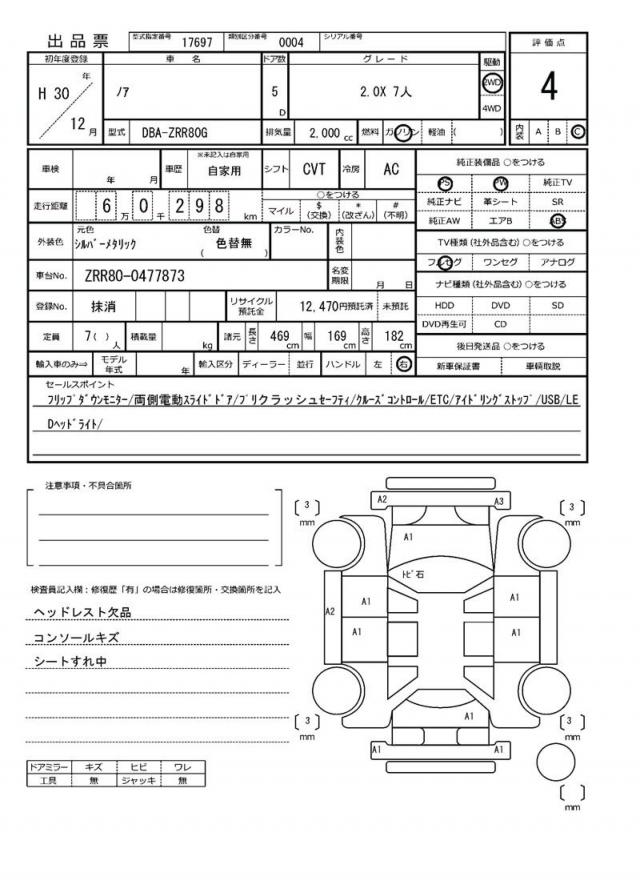 出品票 型式指定番号 17697 類別区分番号 0004 シリアル番号
初年度登録 車名 ドア数 グレード 駆動 評価点
H 30 年 ノア 5 D 2.0X 7人 2WD 4
12 月 4WD
型式 DBA-ZRR80G 排気量 2,000 cc 燃料 ガソリン 軽油 ( ) 内装 A B C
車検 年 月 車歴 ※未記入は自家用 自家用 シフト CVT 冷房 AC
走行距離 6 万 0 千 2 9 8 km ○をつける マイル $ (交換) * (改ざん) # (不明)
外装色 元色 シルバーメタリック 色替 ( 色替無 ) カラーNo. 内装色
車台No. ZRR80-0477873 名変期限 月 日
登録No. 抹消 リサイクル預託金 12,470円預託済 未預託
定員 7( ) 人 積載量 kg 諸元 長さ 469 cm 幅 169 cm 高さ 182 cm
輸入車のみ⇒ モデル年式 年 輸入区分 ディーラー 並行 ハンドル 左 右
純正装備品 ○をつける
PS PW 純正TV
純正ナビ 革シート SR
純正AW エアB ABS
TV種類(社外品含む)○をつける
フルセグ ワンセグ アナログ
ナビ種類(社外品含む)○をつける
HDD DVD SD
DVD再生可 CD
後日発送品 ○をつける
新車保証書 車輌取説
セールスポイント
フリップダウンモニター/両側電動スライドドア/プリクラッシュセーフティ/クルーズコントロール/ETC/アイドリングストップ/USB/LE
Dヘッドライト/
注意事項・不具合箇所
検査員記入欄：修復歴「有」の場合は修復箇所・交換箇所を記入
ヘッドレスト欠品
コンソールキズ
シートすれ中
ドアミラー キズ ヒビ ワレ
工具 無 ジャッキ 無
[ 3 ] mm A2 A3 [ 3 ] mm
A1
トビ石
A2 A1 A1
A1 A1
[ 3 ] mm A1 [ 3 ] mm
A1 A1
[ ] mm